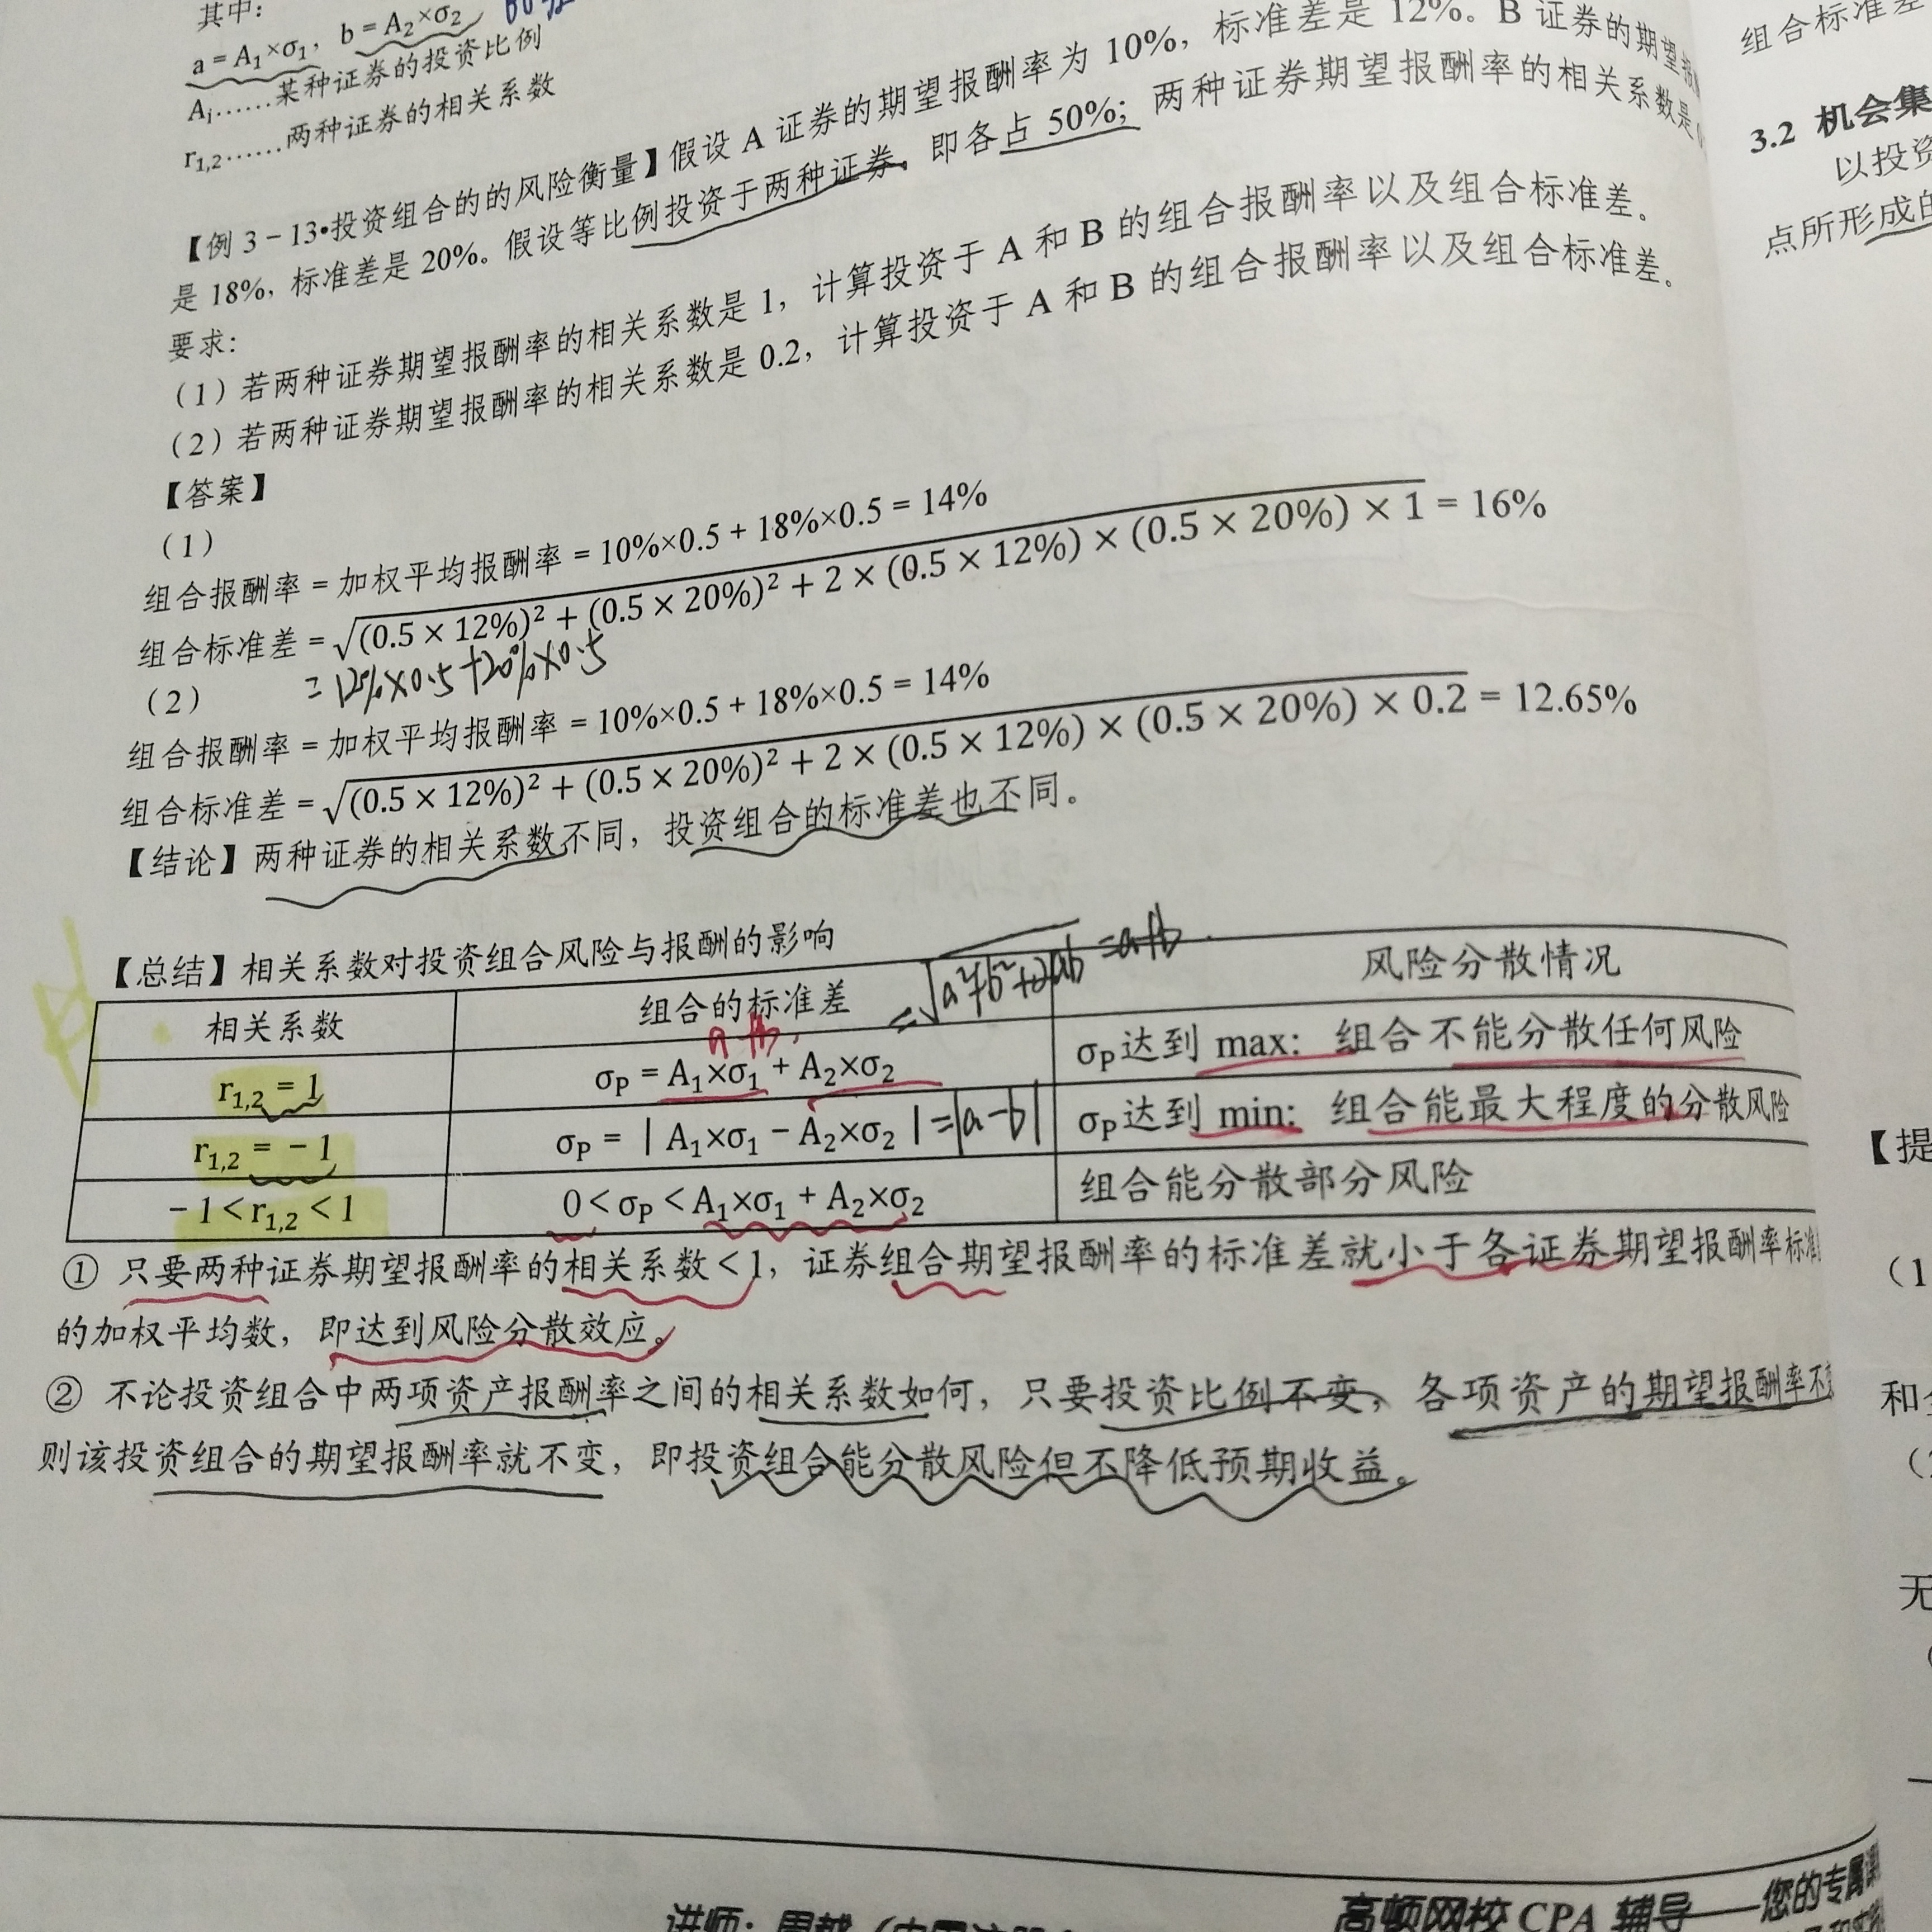 其中:
a = A₁×σ₁, b = A₂×σ₂
Aᵢ……某种证券的投资比例
r₁,₂……两种证券的相关系数
【例 3-13•投资组合的的风险衡量】假设 A 证券的期望报酬率为 10%, 标准差是 12%。B 证券的期望报
是 18%, 标准差是 20%。假设等比例投资于两种证券, 即各占 50%; 两种证券期望报酬率的相关系数是
要求:
(1) 若两种证券期望报酬率的相关系数是 1, 计算投资于 A 和 B 的组合报酬率以及组合标准差。
(2) 若两种证券期望报酬率的相关系数是 0.2, 计算投资于 A 和 B 的组合报酬率以及组合标准差。
【答案】
(1)
组合报酬率 = 加权平均报酬率 = 10%×0.5 + 18%×0.5 = 14%
组合标准差 = √(0.5 × 12%)² + (0.5 × 20%)² + 2 × (0.5 × 12%) × (0.5 × 20%) × 1 = 16%
= 12%×0.5+20%×0.5
(2)
组合报酬率 = 加权平均报酬率 = 10%×0.5 + 18%×0.5 = 14%
组合标准差 = √(0.5 × 12%)² + (0.5 × 20%)² + 2 × (0.5 × 12%) × (0.5 × 20%) × 0.2 = 12.65%
【结论】两种证券的相关系数不同, 投资组合的标准差也不同。
【总结】相关系数对投资组合风险与报酬的影响
=√a²+b²+2ab =a+b
相关系数 组合的标准差 风险分散情况
a+b
r₁,₂ = 1 σP = A₁×σ₁ + A₂×σ₂ σP达到 max: 组合不能分散任何风险
r₁,₂ = - 1 σP = | A₁×σ₁ - A₂×σ₂ | =|a-b| σP达到 min: 组合能最大程度的分散风险
- 1 < r₁,₂ < 1 0 < σP < A₁×σ₁ + A₂×σ₂ 组合能分散部分风险
① 只要两种证券期望报酬率的相关系数 < 1, 证券组合期望报酬率的标准差就小于各证券期望报酬率标准
的加权平均数, 即达到风险分散效应。
② 不论投资组合中两项资产报酬率之间的相关系数如何, 只要投资比例不变, 各项资产的期望报酬率不变
则该投资组合的期望报酬率就不变, 即投资组合能分散风险但不降低预期收益。
高顿网校 CPA 辅导——您的专属
组合标准差
3.2 机会集
以投资
点所形成的
【提
(1
和
无